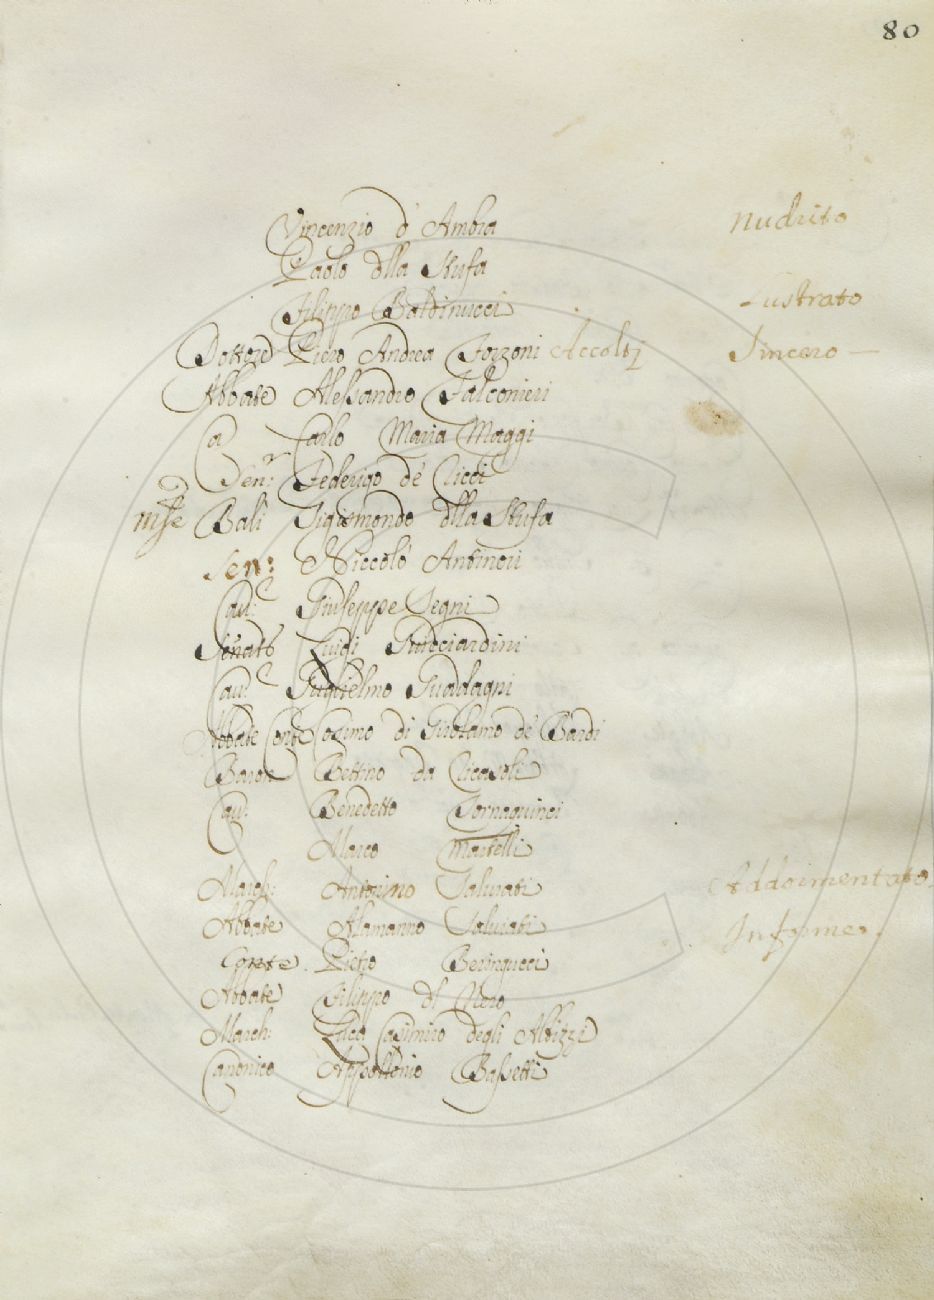 80
Vincenzio d' Ambra nudrito
Paolo dlla Stufa
Filippo Baldinucci Lustrato
Dottore Piero Andrea Forzoni Accolti Sincero —
Abbate Alessandro Falconieri
Carlo Maria Maggi
Senr: Federigo de' Ricci
Balì Sigismondo dlla Stufa
Sen: Niccolò Antinori
Cav: Giuseppe Segni
Senats Luigi Guicciardini
Cav: Guglielmo Guadagni
Abbate Conte Cosimo di Girolamo de' Bardi
Baron Bettino da Ricasoli
Cav: Benedetto Tornaquinci
Marco Martelli
March: Antonino Salviati Addormentato
Abbate Alamanno Salviati Informe.
Conte Pietro Beringucci
Abbate Filippo dl Nero
March: Luca Casimiro degli Albizzi
Canonico Appollonio Bassetti